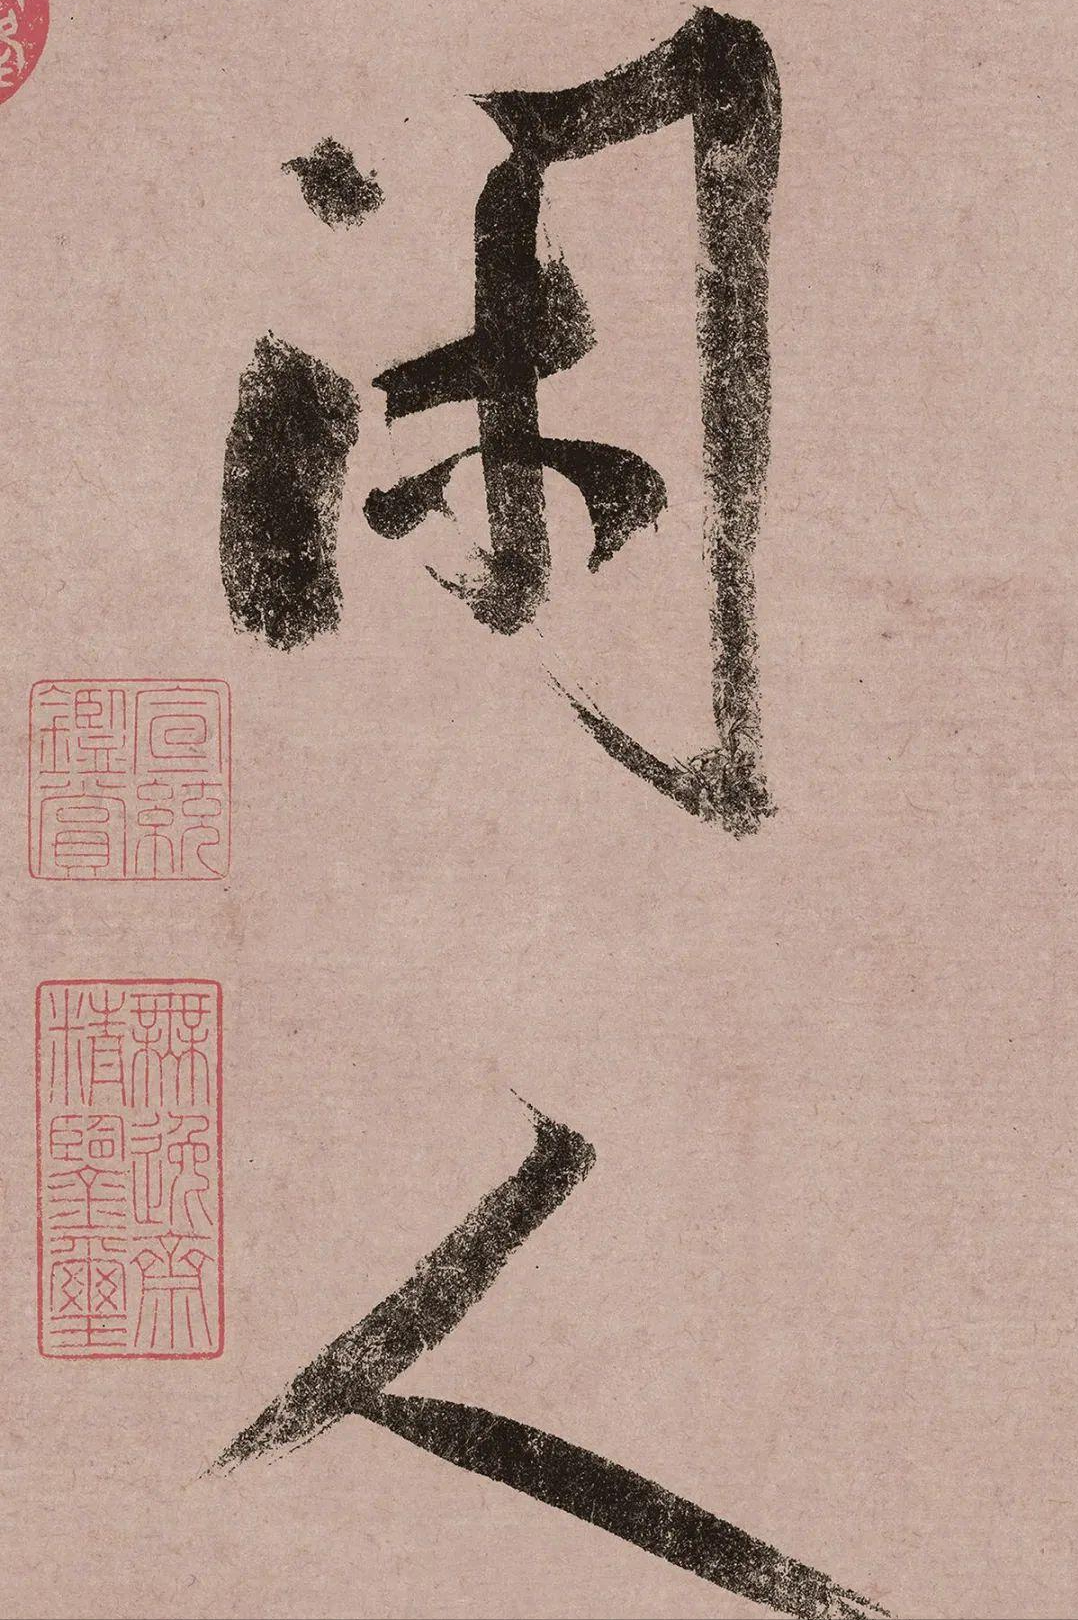 闲人
宣統
鑑賞
無逸齋
精鑒璽